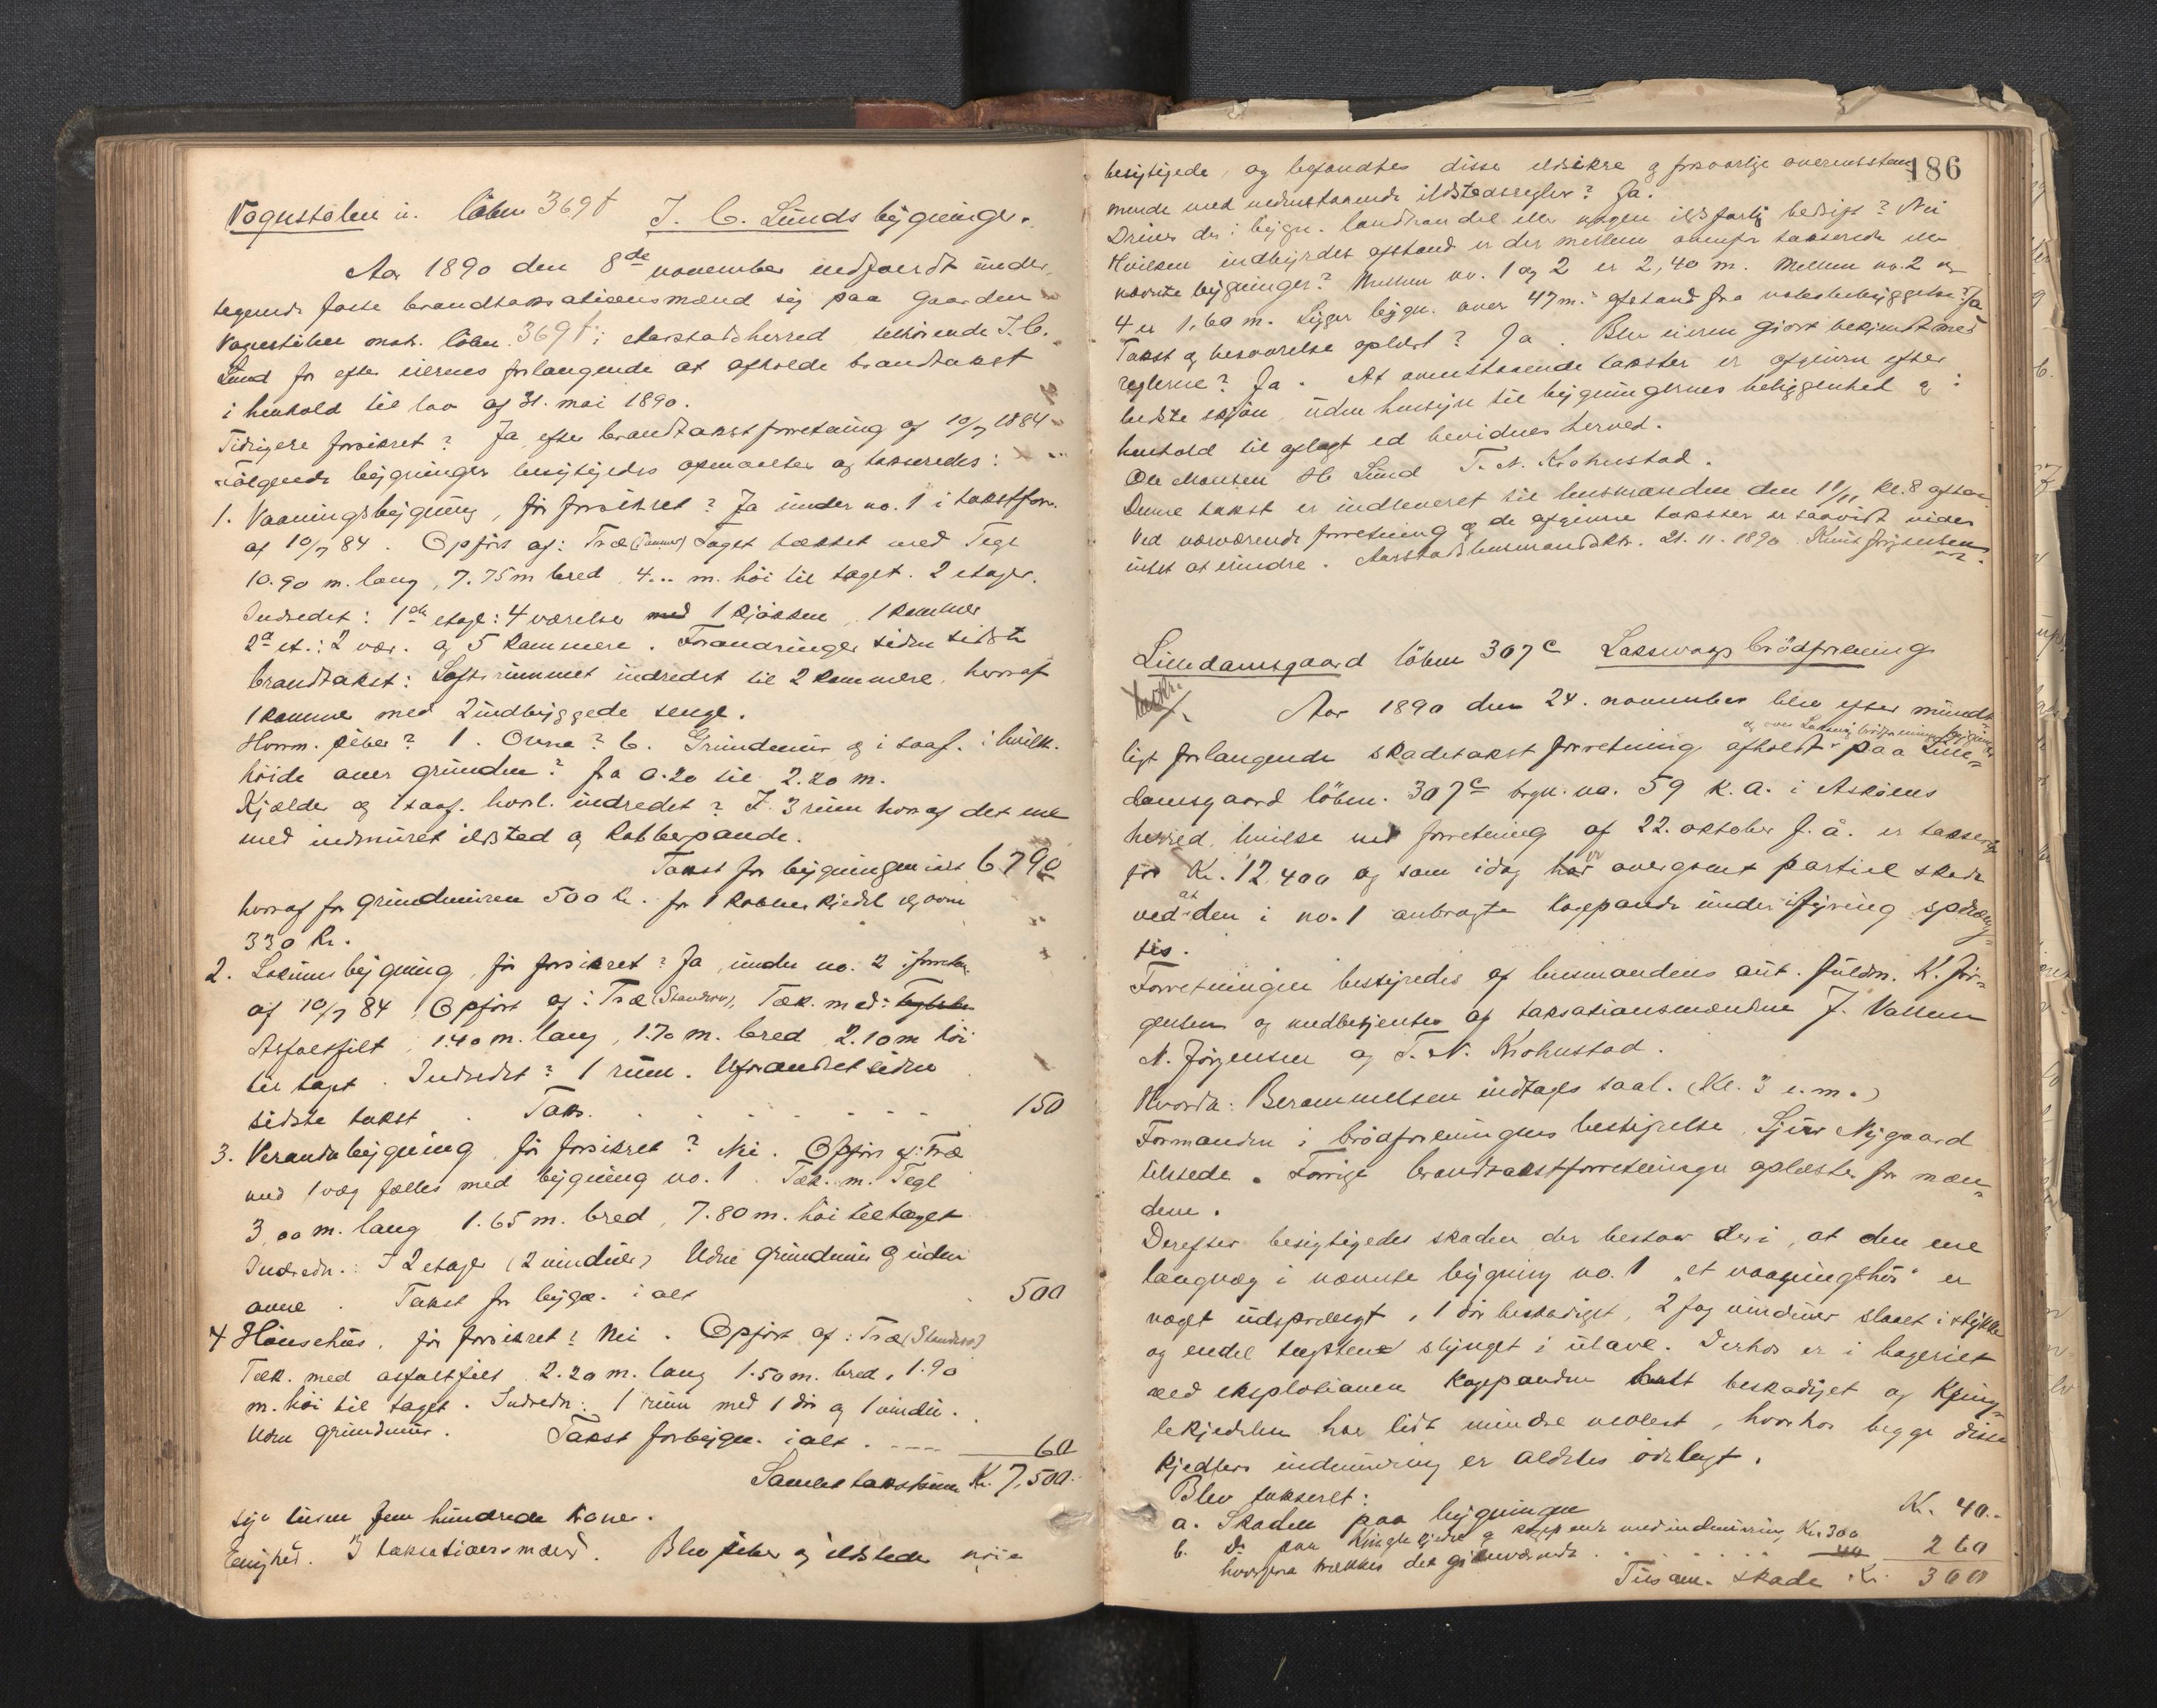 Vognstølen u. löbn 369f J. C. Lunds bygninger.
Aar 1890 den 8de november indfandt under-
tegnede faste brandtaksationsmænd sig paa gaarden
Vognstølen matr. löbn. 369f i Aarstadsherred tilhörende J. C.
Lund for efter eiernes forlangende at afholde brandtakst
i henhold til lov af 31. mai 1890.
Tidligere forsikret? Ja efter brandtakstforretning af 10/7 1884
Fölgende bygninger besigtigedes opmaaltes og takseredes:
1. Vaaningsbygning, för forsikret? Ja under no. 1 i takstforr.
af 10/7 84. Opfört af: Træ (Tömmer) Taget tækket med Tegl
10.90 m. lang, 7.75 m bred 4... m. höi til taget. 2 etager.
Indredet: 1ste etage: 4 værelser med 1 kjökken, 1 kammer
2d et.: 2 vær. og 5 kammere. Forandringer siden sidste
brandtakst: Loftsrummet indredet til 2 kammere, hvoraf
1 kammer med 2 indbyggede senge.
Hvorm. piber? 1. Ovne? 6. Grundmur og i saaf. i hvilk.
höide over grunden? fra 0.20 til 2.20 m.
Kjælder og i saaf. hvorl. indredet? I 3 rum hvoraf det ene
med indmuret ildsted og kobberpande.
Takst for bygningen ialt 6790
hvoraf for grundmuren 500 kr. for 1 kobberkjedel og ovne
330 kr.
2. Lokumsbygning, för forsikret? Ja, under no. 2 i forretn.
af 10/7 84 Opfört af: Træ (Standverk), Tæk. med:
Asfaltfilt, 1.40 m. lang, 1.70 m. bred 2.10 m höi
til taget. Indredet? 1 rum. Uforandret siden
sidste takst. Takst. . . . . . . . 150
3. Verandabygning för forsikret? Nei. Opfört af: Træ
med 1 væg fælles med bygning no. 1. Tæk. m. Tegl
3,00 m. lang 1.65 m. bred, 7.80 m. höi til taget
Indredn.: I 2 etager (2 vinduer) Uden grundmur og uden
ovne. Takst for bygn. i alt . 500
4 Hönsehus, för forsikret? Nei. Opfört af: Træ (Standverk)
Tæk. med asfaltfilt 2.20 m. lang 1.50 m. bred, 1.90
m. höi til taget. Indredn: 1 rum med 1 dör og 1 vindu.
Uden grundmur. Takst for bygn. i alt. 60
Samlet takstsum Kr. 7,500.
siger syv tusen fem hundrede kroner.
Enighed. 3 taksationsmænd. Blev piber og ildsteder nöie
186
besigtigede, og befandtes disse ildsikre og forsvarlige overensstem-
mende med nedenstaaende ildstedsregler? Ja.
Drives der i bygn. landhandel eller nogen ildsfarlig bedrift? Nei
Hvilken indbyrdes afstand er der mellem ovenfor takserede eller
nævnte bygninger? Mellem no. 1 og 2 er 2,40 m. Mellem no. 2 og
4 er 1,60 m. Ligger bygn. over 47 m. afstand fra nabobebyggelse? Ja
Takst og besvarelse oplæst? Ja. Blev eieren gjort bekjendt med
reglerne? Ja. At ovenstaaende takster er afgivne efter
bedste skjön, uden hensyn til bygningernes beliggenhed og i
henhold til aflagt ed bevidnes herved.
Ole Monsen H. Lund T. N. Krohnstad.
Denne takst er indleveret til lensmanden den 11/11 kl. 8 aften
Ved nærværende forretning og de afgivne takster er saavidt vides
intet at erindre. Aarstads lensmandsktr. 21. 11. 1890 Knut Jörgensen
Lilledamsgaard löbn 307c Laksevaags brödforening
Aar 1890 den 24. november blev efter mundt-
og over Laksevaag brödforenings bygninger
ligt forlangende skadetakst forretning afholdt paa Lille-
damsgaard löbn. 307c brgn. no. 59 k. a. i Askøens
herred, hvilke ved forretning af 22. oktober f. å. er takseret
for Kr. 12,400 og som idag har overgaaet partiel skade
ved at den i no. 1 anbragte kogepande under ifyring spræng-
tes.
Forretningen bestyredes af lensmandens aut. fuldm. K. Jör-
gensen og medbetjentes af taksationsmændene J. Vallem
N. Jörgensen og T. N. Krohnstad.
Hvorda: Berammelsen indtages saal. (Kl. 3 e. m.)
Formanden i brödforeningens bestyrelse Sjur Nygaard
tilstede. Forrige brandtakstforretninger oplæstes for mæn-
dene.
Derefter besigtigedes skaden der bestaar deri, at den ene
langvæg i nævnte bygning no. 1 "et vaaningshus" er
noget udsprængt, 1 dör beskadiget, 2 fag vinduer slaaet i stykker
og endel tagstene slynget i ulave. Derhos er i bageriet
ved eksplosionen kogepanden helt beskadiget og kring-
lekjedelen har lidt mindre volest, hvorhos begge disse
kjedlers indmuring er aldeles ödelagt.
Blev takseret:
a. Skaden paa bygningen Kr. 40.-
b. Do paa kringlekjedel og kogepande med indmuring Kr. 300
hvorfra trækkes det gjenværende . . . . 40 260
Tilsam. skade Kr. 300